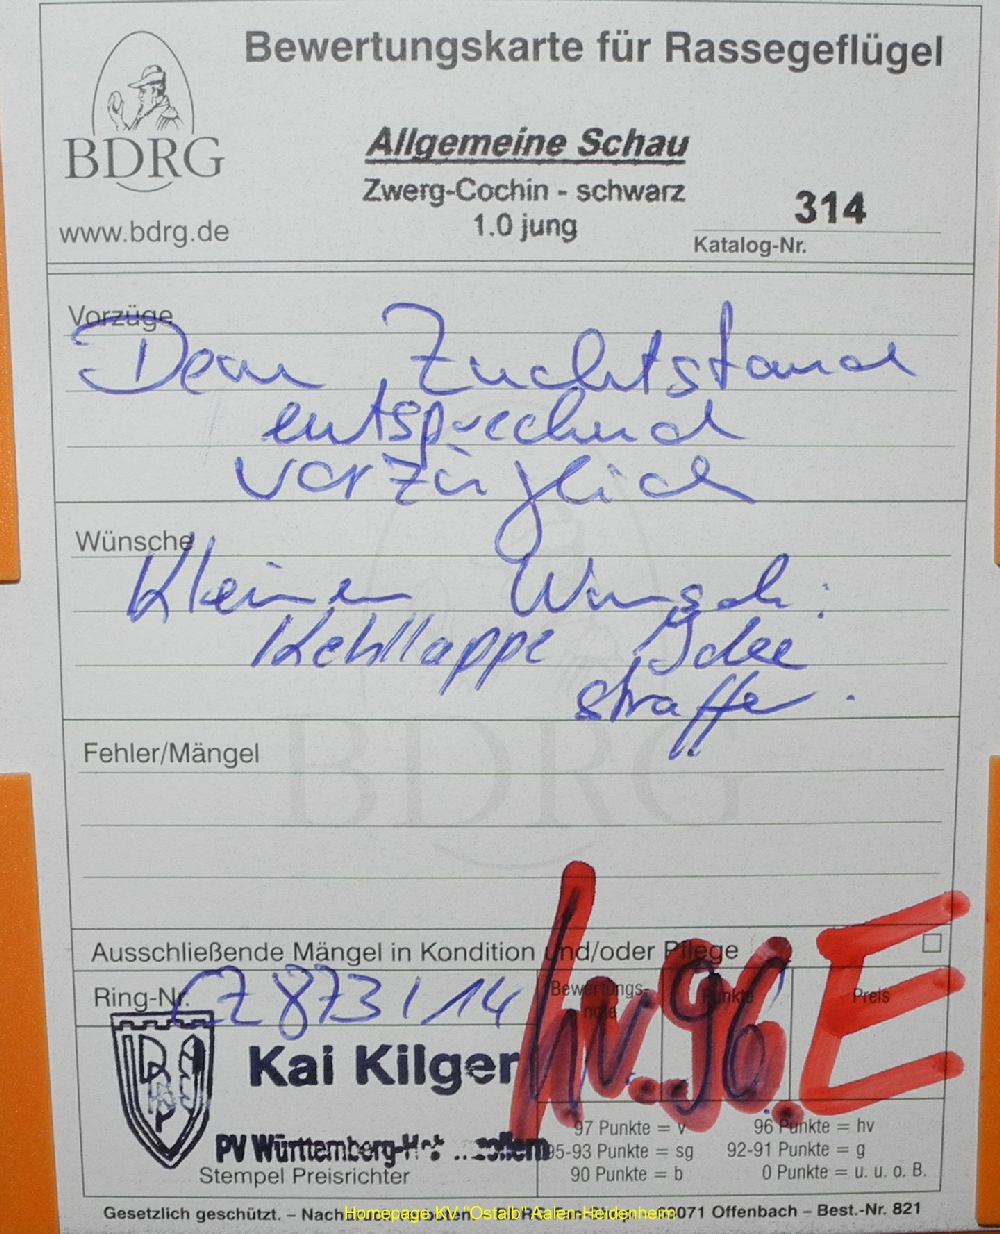 Bewertungskarte für Rassegeflügel
BDRG
www.bdrg.de
Allgemeine Schau
Zwerg-Cochin - schwarz
1.0 jung
314
Katalog-Nr.
Vorzüge
Dem Zuchtstand
entsprechend
vorzüglich
Wünsche
Kleinen Wunsch:
Kehllappe Idee
straffer.
BDRG
Fehler/Mängel
Ausschließende Mängel in Kondition und/oder Pflege
Ring-Nr. CZ 873 / 14
Bewertungs-
note
Punkte
Preis
hv. 96. E
Kai Kilger
PV Württemberg-
Stempel Preisrichter
97 Punkte = v 96 Punkte = hv
95-93 Punkte = sg 92-91 Punkte = g
90 Punkte = b 0 Punkte = u. u. o. B.
Gesetzlich geschützt. – 63071 Offenbach – Best.-Nr. 821
Homepage KV "Ostalb" Aalen-Heidenheim